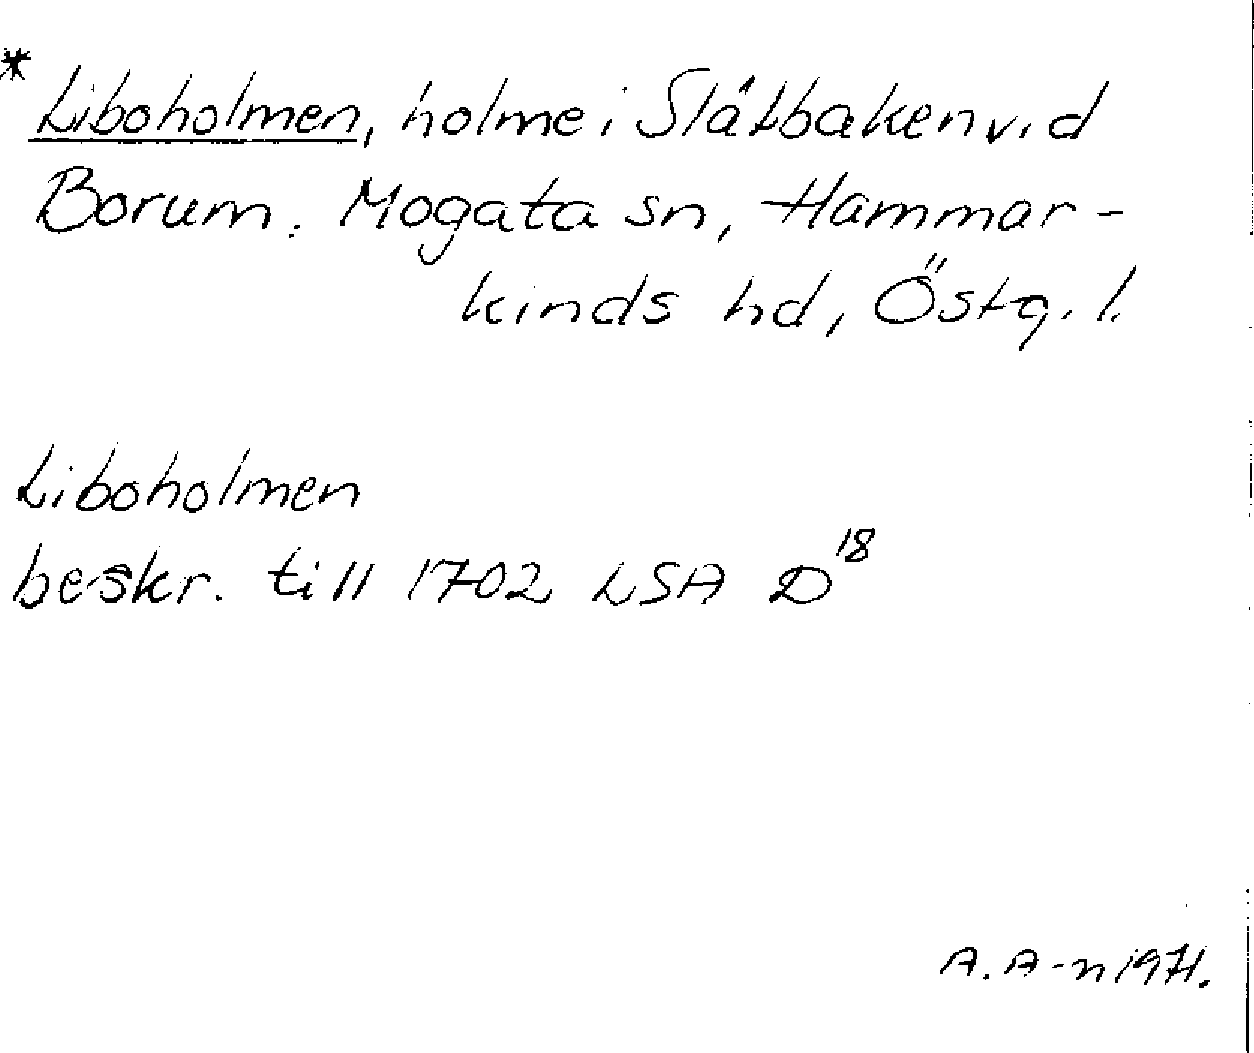 * Liboholmen, holme i Slätbaken vid
Borum. Mogata sn, Hammar-
kinds hd, Östg. l.
Liboholmen
beskr. till 1702 LSA D18
A. A-n 1971.